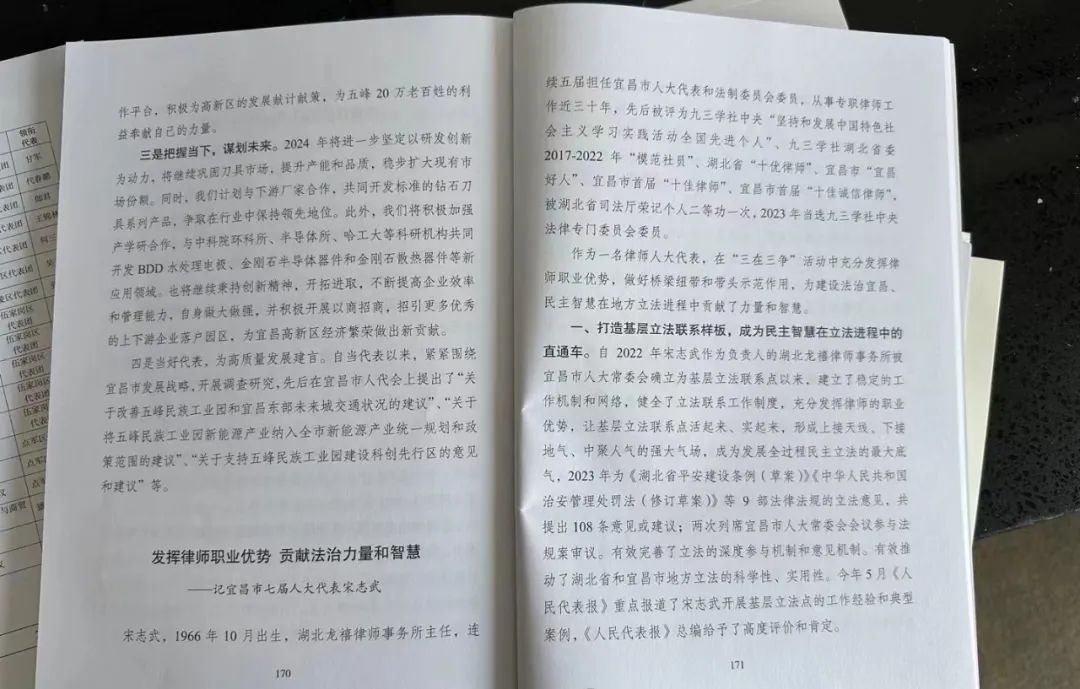 领衔
代表
甘军
代春鹏
作平台，积极为高新区的发展献计献策，为五峰 20 万老百姓的利
益奉献自己的力量。
三是把握当下，谋划未来。2024 年将进一步坚定以研发创新
为动力，将继续巩固刀具市场，提升产能和品质，稳步扩大现有市
场份额。同时，我们计划与下游厂家合作，共同开发标准的钻石刀
具系列产品，争取在行业中保持领先地位。此外，我们将积极加强
产学研合作，与中科院环科所、半导体所、哈工大等科研机构共同
开发 BDD 水处理电极、金刚石半导体器件和金刚石散热器件等新
应用领域。也将继续秉持创新精神，开拓进取，不断提高企业效率
和管理能力，自身做大做强，并积极开展以商招商，招引更多优秀
的上下游企业落户园区，为宜昌高新区经济繁荣做出新贡献。
四是当好代表，为高质量发展建言。自当代表以来，紧紧围绕
宜昌市发展战略，开展调查研究，先后在宜昌市人代会上提出了“关
于改善五峰民族工业园和宜昌东部未来城交通状况的建议”、“关于
将五峰民族工业园新能源产业纳入全市新能源产业统一规划和政
策范围的建议”、“关于支持五峰民族工业园建设科创先行区的意见
和建议”等。
发挥律师职业优势 贡献法治力量和智慧
——记宜昌市七届人大代表宋志武
宋志武，1966 年 10 月出生，湖北龙禧律师事务所主任，连
170
续五届担任宜昌市人大代表和法制委员会委员，从事专职律师工
作近三十年，先后被评为九三学社中央“坚持和发展中国特色社
会主义学习实践活动全国先进个人”、九三学社湖北省委
2017-2022 年“模范社员”、湖北省“十优律师”、宜昌市“宜昌
好人”、宜昌市首届“十佳律师”、宜昌市首届“十佳诚信律师”，
被湖北省司法厅荣记个人二等功一次，2023 年当选九三学社中央
法律专门委员会委员。
作为一名律师人大代表，在“三在三争”活动中充分发挥律
师职业优势，做好桥梁纽带和带头示范作用，为建设法治宜昌、
民主智慧在地方立法进程中贡献了力量和智慧。
一、打造基层立法联系样板，成为民主智慧在立法进程中的
直通车。自 2022 年宋志武作为负责人的湖北龙禧律师事务所被
宜昌市人大常委会确立为基层立法联系点以来，建立了稳定的工
作机制和网络，健全了立法联系工作制度，充分发挥律师的职业
优势，让基层立法联系点活起来、实起来，形成上接天线、下接
地气、中聚人气的强大气场，成为发展全过程民主立法的最大底
气，2023 年为《湖北省平安建设条例（草案）》《中华人民共和国
治安管理处罚法（修订草案）》等 9 部法律法规的立法意见，共
提出 108 条意见或建议；两次列席宜昌市人大常委会会议参与法
规案审议。有效完善了立法的深度参与机制和意见机制。有效推
动了湖北省和宜昌市地方立法的科学性、实用性。今年 5 月《人
民代表报》重点报道了宋志武开展基层立法点的工作经验和典型
案例，《人民代表报》总编给予了高度评价和肯定。
171